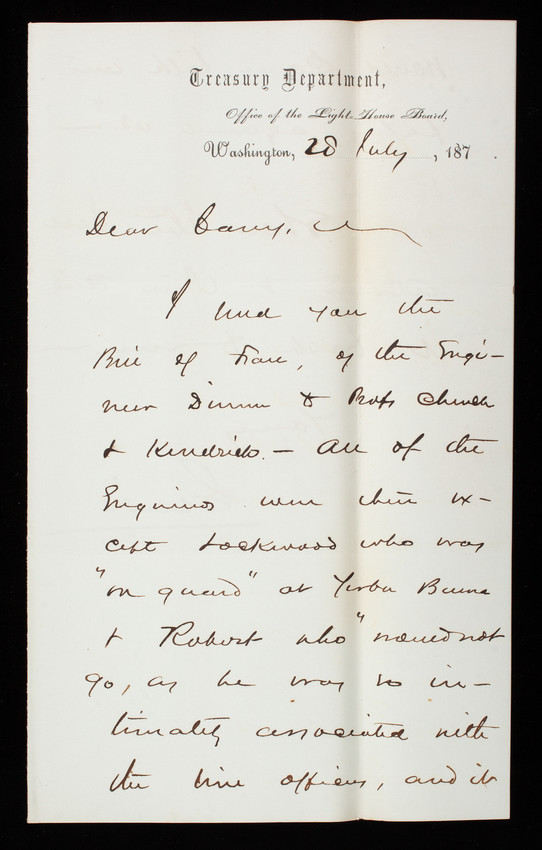 Treasury Department,
Office of the Light-House Board,
Washington, 28 July, 187 .
Dear Casey,
I send you the
Bill of Fare, of the Engi-
neer Dinner to Profs Church
& Kendrick. — All of the
Engineers were there ex-
cept Lockwood who was
"on guard" at Yerba Buena
& Robert who "would not
go, as he was so in-
timately associated with
the line officers, and it